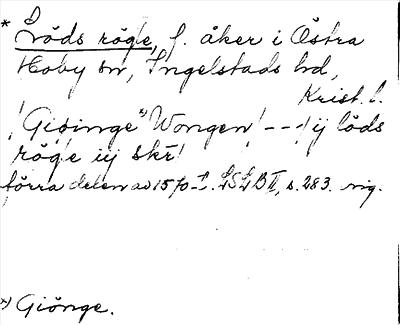 * Löds röge, f. åker i Östra
Hoby sn, Ingelstads hd,
Krist. l.
! Giöinge *) Wongen! - - - ! ij löds
röge iij skr !
förra delen av 1570-t. s. 283. sig.
*) Giönge.